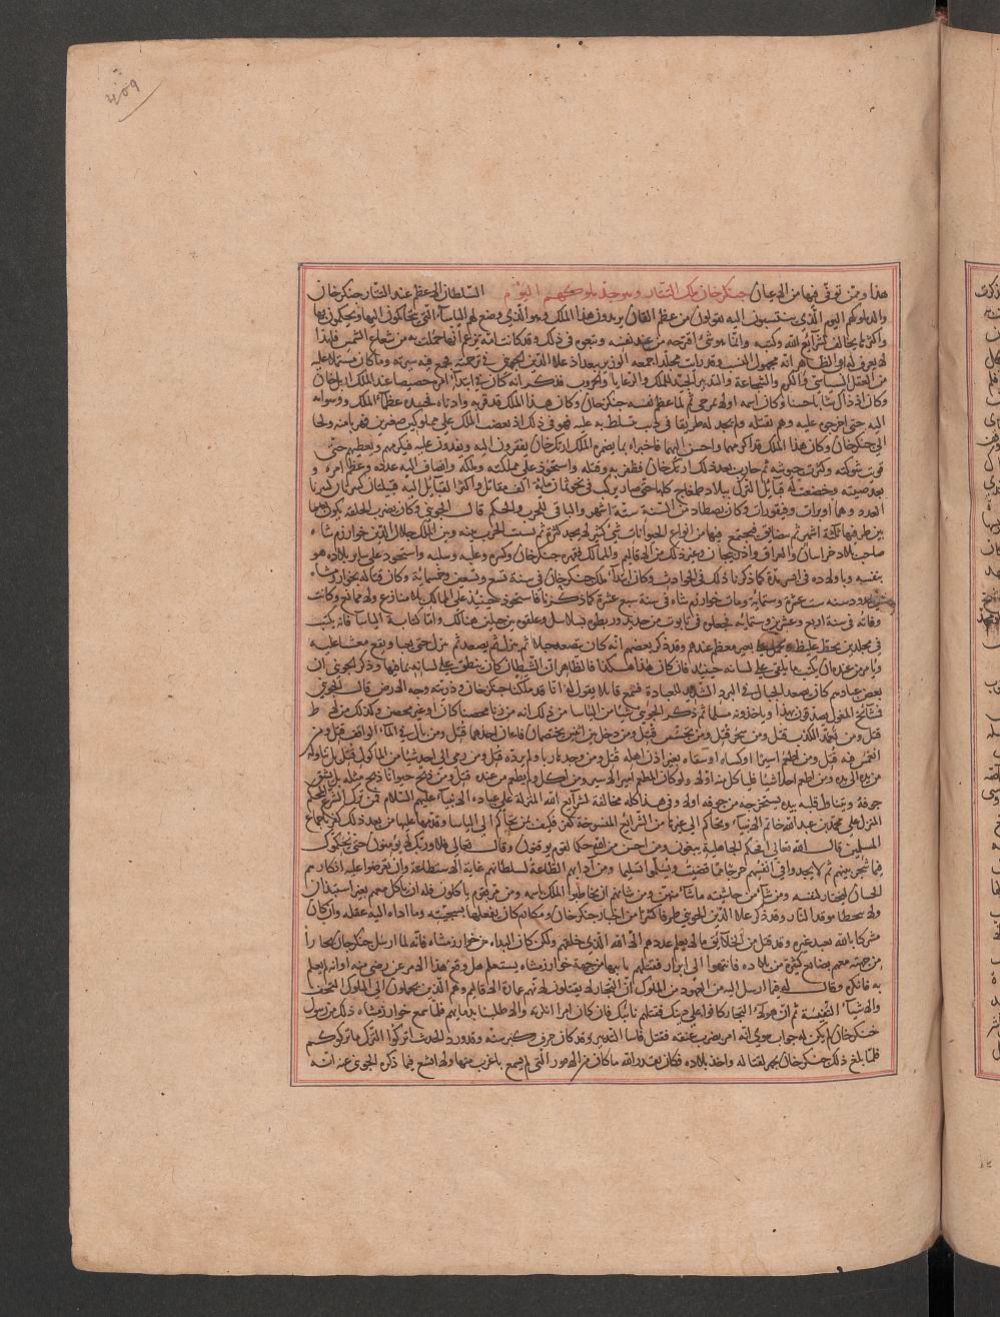 ٤٥٩
هذا وممن توفي فيها من الاعيان جنكزخان ملك التتار وهو جد ملوكهم اليوم السلطان الاعظم عند التتار جنكزخان
والد ملوكهم اليوم الذي ينتسبون اليه يقولون من عظم القان يريدون هذا الملك وهو الذي وضع لهم الياسا التي يتحاكمون اليها ويحكمون بها
واكثرها يخالف لشرائع الله وكتبه وانما هو شيء اقترحه من عند نفسه وتبعوه في ذلك وقد كانت امه تزعم انها حملت به من شعاع الشمس فلهذا
لا يعرف له اب والظاهر انه مجهول النسب وقد رايت مجلدا جمعه الوزير ببغداد علا الدين الجويني في ترجمته جمع فيه سيرته وما كان يشتمل عليه
من العقل السياسي والكرم والشجاعة والتدبير الجيد للملك والرعايا والحروب فذكر انه كان في ابتداء امره خصيصا عند الملك ازبك خان
وكان اذ ذاك شابا حسنا وكان اسمه اولا تمرجي ثم لما عظم نفسه جنكزخان وكان هذا الملك قد قربه وادناه فحسده عظماء الملك ووشوا به
اليه حتى اخرجوه عليه وهم بقتله ولم يجد له طريقا في ذنب يتسلط به عليه فهو في ذلك اذ تغضب الملك على مملوكين صغيرين فهربا منه ولجا
الى جنكزخان وكان هذا الملك قد اكرمهما واحسن اليهما فاخبراه بما يضمره الملك ازبك خان
قويت شوكته وكثرت جيوشه ثم حارب بعد ذلك ازبك خان فظفر به وقتله واستحوذ على مملكته وملكه وانضاف اليه عدده وعظم امره و
بعد صيته وخضعت له قبائل الترك ببلاد طمغاج كلها حتى صار يركب في نحو ثمان مائة الف مقاتل واكثر القبائل اليه قبيلتان كبيرتان كثيرتا
العدد وهما اويرات وقنقورات وكان يصطاد من السنة ستة اشهر والباقي للحرب والحكم قال الجويني وكان يضرب الحلقة يكون ما
بين طرفيها ثلاثة اشهر ثم تتضايق فيجتمع فيها من انواع الحيوانات شيء كثير لا يحد كثرة ثم نشبت الحرب بينه وبين الملك جلال الدين خوارزم شاه
صاحب بلاد خراسان والعراق واذربيجان وغير ذلك من الاقاليم والممالك فقهره جنكزخان وكسره وغلبه وسلبه واستحوذ على سائر بلاده هو
بنفسه وباولاده في ايسر مدة كما ذكرنا ذلك في الحوادث وكان ابتداء ملك جنكزخان في سنة تسع وتسعين وخمسمائة وكان قتاله لخوارزم شاه
في حدود سنه ست عشرة وستمائة ومات خوارزم شاه في سنة سبع عشرة كما ذكرنا فاستحوذ حينئذ على الممالك بلا منازع ولا ممانع وكانت
وفاته في سنة اربع وعشرين وستمائة فجعلوه في تابوت من حديد وربطوه بسلاسل وعلقوه بين جبلين هنالك واما كتابة الياسا فانه يكتب
في مجلدين بخط غليظ ويحمل على بعير معظم عندهم وقد ذكر بعضهم انه كان يصعد جبلا ثم ينزل ثم يصعد ثم ينزل حتى يعيا ويقع مغشيا عليه
ويامر من عنده ان يكتب ما يلقى على لسانه حينئذ فان كان هذا هكذا فالظاهر ان الشيطان كان ينطق على لسانه بما فيها وذكر الجويني ان
بعض عبادهم كان يصعد الجبال في البرد الشديد للعبادة فسمع قائلا يقول له انا قد ملكنا جنكزخان وذريته وجه الارض قال الجويني
فمشايخ المغول يصدقون بهذا وياخذونه مسلما ثم ذكر الجويني شيئا من الياسا من ذلك انه من زنا محصنا كان او غير محصن وكذلك من لا ط
قتل ومن تعمد الكذب قتل ومن سحر قتل ومن تجسس قتل ومن دخل بين اثنين يختصمان فاعان احدهما قتل ومن بال في الماء الواقف قتل ومن
انغمس فيه قتل ومن اطعم اسيرا او كساه او سقاه بغير اذن اهله قتل ومن وجد هاربا ولم يرده قتل ومن رمى الى احد شيئا من الماكول قتل بل يناوله
من يده الى يده ومن اطعم احدا شيئا فلياكل منه اولا ولو كان المطعم امير الاسير ومن اكل ولم يطعم من عنده قتل ومن ذبح حيوانا ذبح مثله بل يشق
جوفه ويتناول قلبه بيده يستخرجه من جوفه اولا وفي هذا كله مخالفة لشرائع الله المنزلة على عباده الانبياء عليهم السلام فمن ترك الشرع المحكم
المنزل على محمد بن عبد الله خاتم الانبياء وتحاكم الى غيره من الشرائع المنسوخة كفر فكيف بمن تحاكم الى الياسا وقدمها عليها من يعد ذلك كفر باجماع
المسلمين قال الله تعالى افحكم الجاهلية يبغون ومن احسن من الله حكما لقوم يوقنون وقال تعالى فلا وربك لا يؤمنون حتى يحكموك
فيما شجر بينهم ثم لا يجدوا في انفسهم حرجا مما قضيت ويسلموا تسليما ومن ادابهم الطاعة لسلطانهم غاية الاستطاعة وان يعرضوا عليه ابكارهم
الحسان ليختار لنفسه ومن شاء من حاشيته ما شاء منهن ومن شانهم ان يخاطبوا الملك باسمه ومن مر بقوم ياكلون فله ان ياكل معهم بغير استيذان
ولا يتخطا موقد النار وقد ذكر علا الدين الجويني طرفا كثيرا من اخبار جنكزخان ومكارم كان يفعلها بسجيته وما اداه اليه عقله وان كان
مشركا بالله يعبد غيره وقد قتل من الخلائق ما لا يعلم عددهم الا الله الذي خلقهم ولكن كان البداءة من خوارزمشاه فانه لما ارسل جنكزخان تجارا
من جهته معهم بضايع كثيرة من بلاده فانتهوا الى ايران فقتلهم نائبها من جهة خوارزمشاه يستعلم هل وقع هذا الامر عن رضى منه او انه لا يعلم
به فانكره وقال له فيما ارسل اليه من العهود من الملوك ان التجار لا يقتلون لانهم عمارة الاقاليم وهم الذين يحملون الى الملوك التحف
والاشياء النفيسة ثم ان هؤلاء التجار كانوا على دينك فقتلهم نائبك فان كان امرا امرت به والا طلبنا بدمائهم فلما سمع خوارزمشاه ذلك من رسول
جنكزخان لم يكن له جواب سوى انه امر بضرب عنقه فقتل فاسا التدبير وقد كان خرف كبر سنه وقد ورد الحديث اتركوا الترك ما تركوكم
فلما بلغ ذلك جنكزخان تجهز لقتاله واخذ بلاده فكان بقدر الله ما كان من الامور التي لم يسمع باغرب منها ولا ابشع فيما ذكره الجويني عنه انه